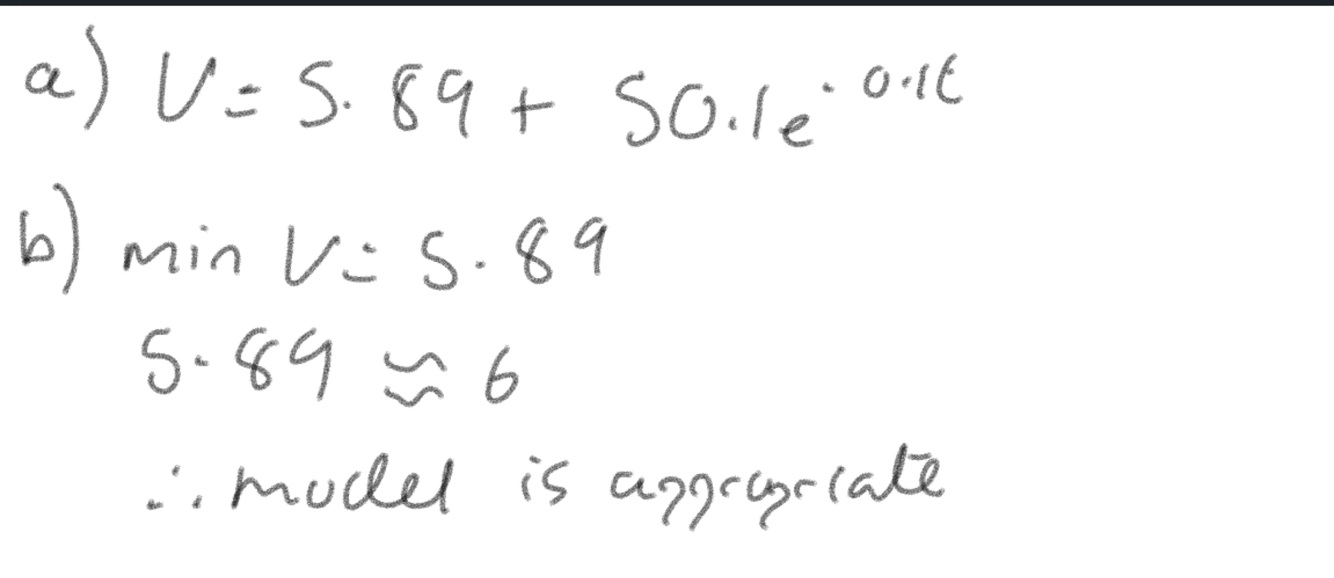 a) V = 5.89 + 50.1e^{-0.1t}
b) min V = 5.89
5.89 ≈ 6
∴ model is appropriate